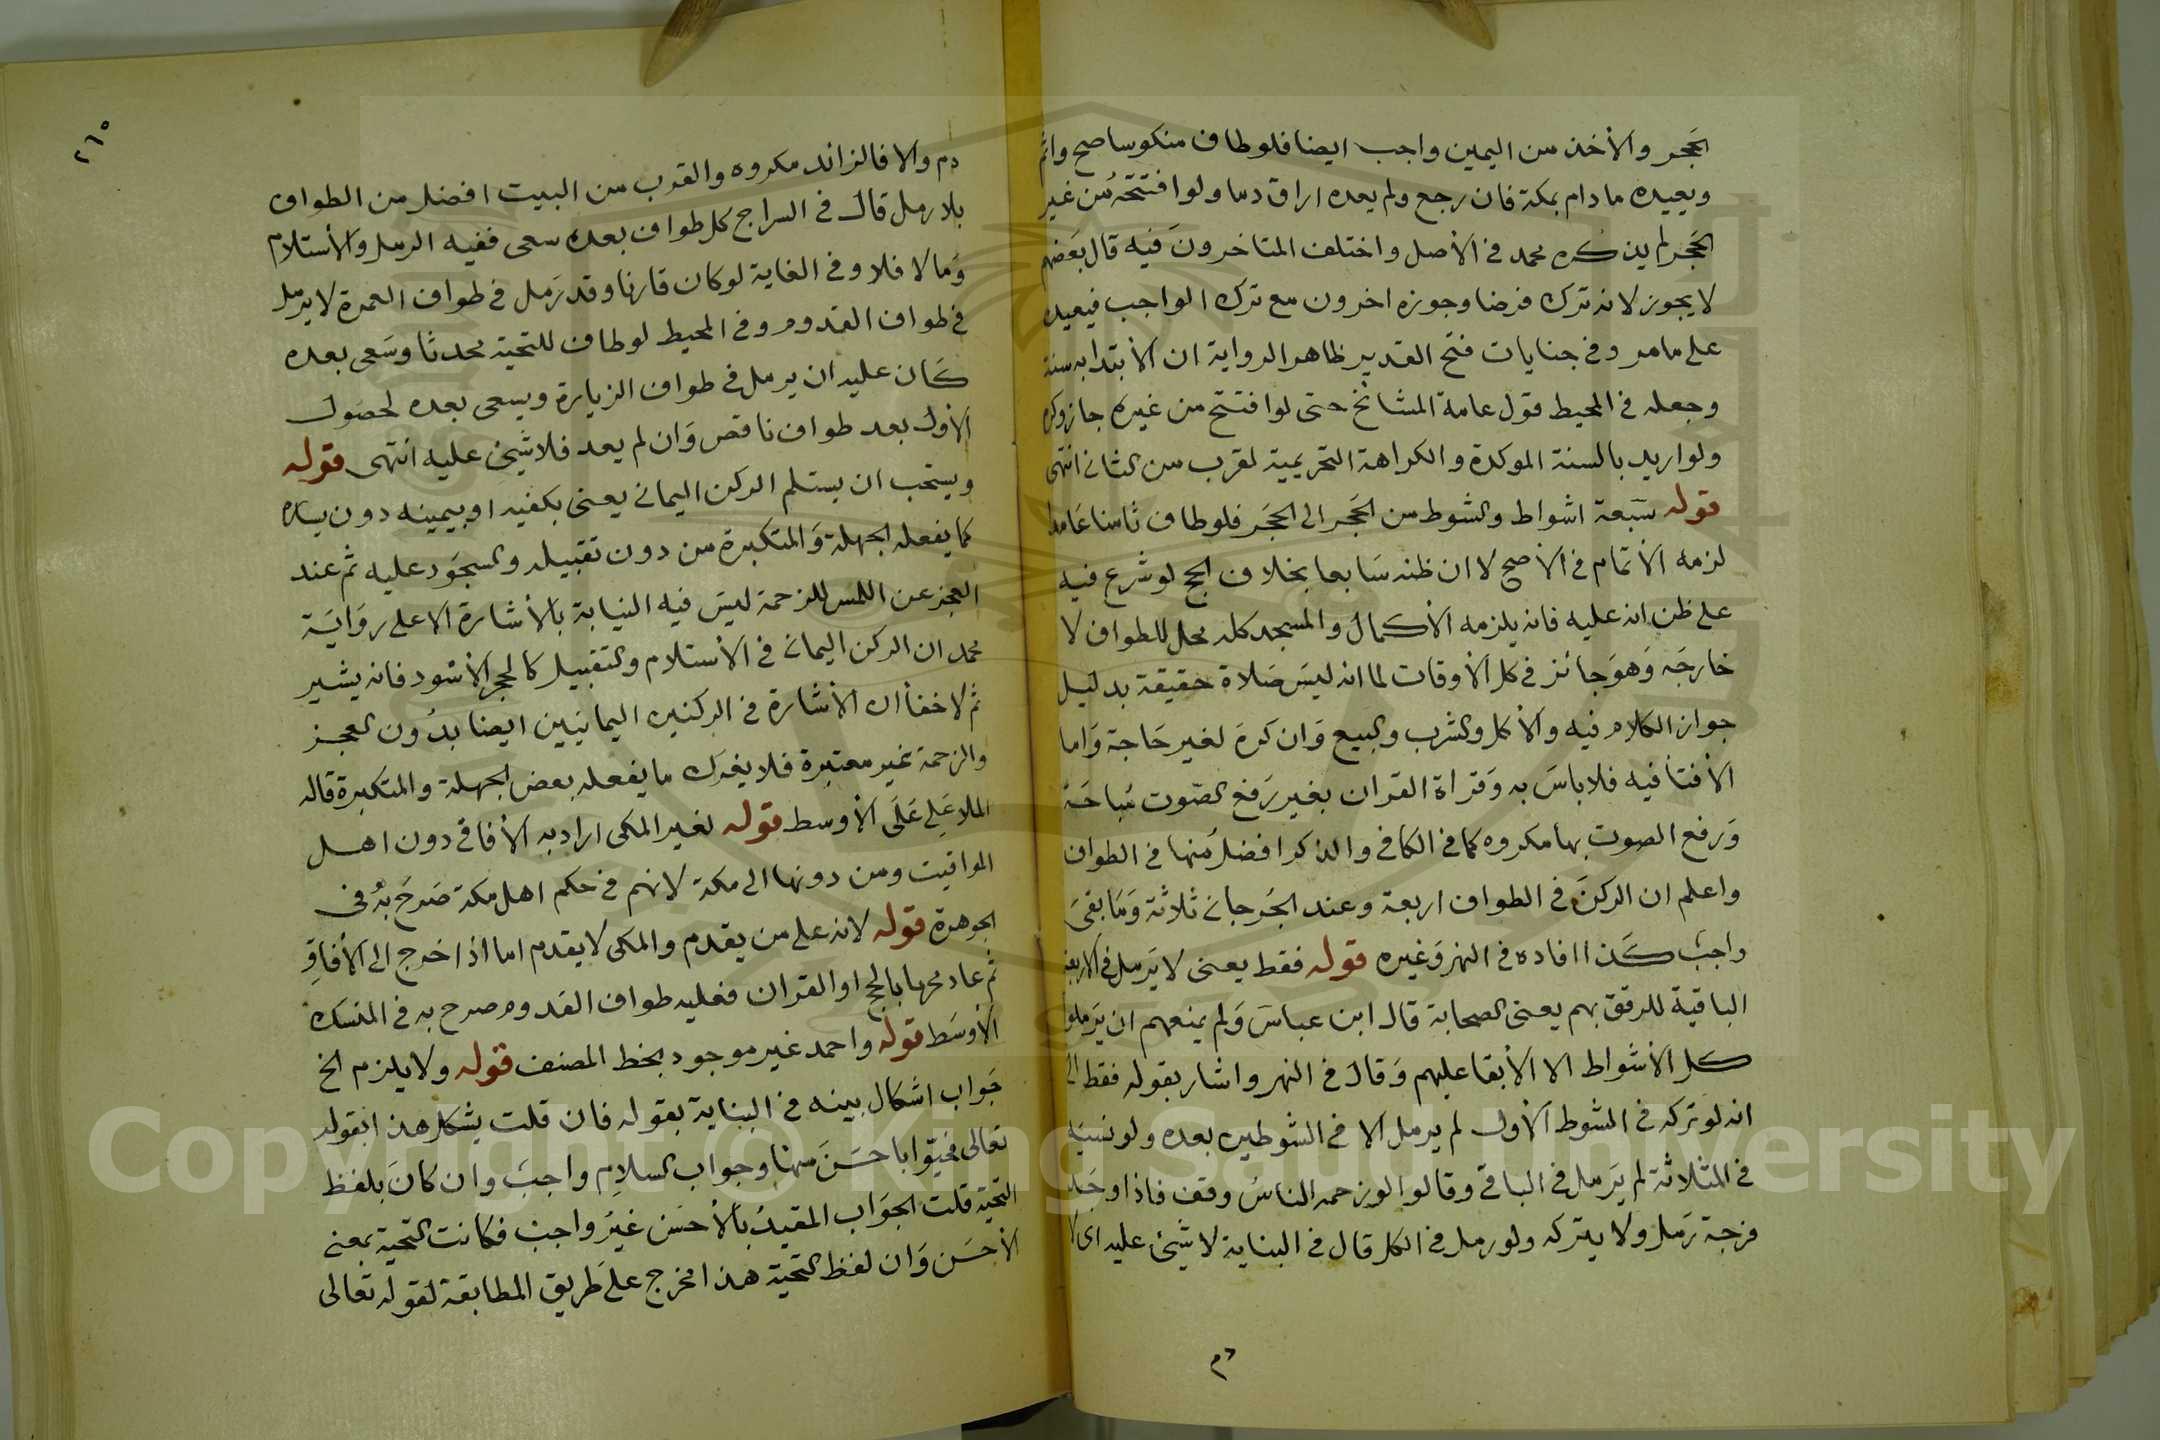 الحجر والأخذ من اليمين واجب ايضا فلو طاف منكوسا صح واثم
ويعيده مادام بمكة فان رجع ولم يعده اراق دما ولو افتتحه من غير
الحجر لم يذكره محمد في الأصل واختلف المتاخرون فيه قال بعضهم
لا يجوز لانه ترك فرضا وجوزه اخرون مع ترك الواجب فيعيده
على ما مر وفي جنايات فتح القدير ظاهر الرواية ان الأبتدا به سنة
وجعله في المحيط قول عامة المشائخ حتى لو افتتح من غيره جاز وكره
ولو اريد بالسنة الموكدة والكراهة التحريمية لقرب من الثاني انتهى
قوله سبعة اشواط والشوط من الحجر الى الحجر فلو طاف ثامنا عامدا
لزمه الأتمام في الأصح لا ان ظنه سابعا بخلاف الحج لو شرع فيه
على ظن انه عليه فانه يلزمه الأكمال والمسجد كله محل للطواف لا
خارجه وهو جائز في كل الأوقات لما انه ليس صلاة حقيقة بدليل
جواز الكلام فيه والأكل والشرب والبيع وان كره لغير حاجة واما
الأفتأ فيه فلا باس به وقراة القران بغير رفع الصوت مباحة
ورفع الصوت بها مكروه كما في الكافي والذكر افضل منها في الطواف
واعلم ان الركن في الطواف اربعة وعند الجرجاني ثلاثة وما بقي
واجب كذا افاده في النهر وغيره قوله فقط يعنى لا يرمل في الاربعة
الباقية للرفق بهم يعنى الصحابة قال ابن عباس ولم يمنعهم ان يرملوا
كل الأشواط الا الأبقا عليهم وقال في النهر واشار بقوله فقط الى
انه لو تركه في الشوط الأول لم يرمل الا في الشوطين بعده ولو نسيه
في الثلاثة لم يرمل في الباقي وقالوا لو زحمه الناس وقف فاذا وجد
فرجة رمل ولا يتركه ولو رمل في الكل قال في البناية لا شيئ عليه اى لا
دم والا فالزائد مكروه والقرب من البيت افضل من الطواف
بلا رمل قال في السراج كل طواف بعده سعى ففيه الرمل والأستلام
وما لا فلا وفي الغاية لو كان قارنا وقد رمل في طواف العمرة لا يرمل
في طواف القدوم وفي المحيط لو طاف للتحية محدثا وسعى بعده
كان عليه ان يرمل في طواف الزيارة ويسعى بعده لحصول
الأول بعد طواف ناقص وان لم يعد فلا شيئ عليه انتهى قوله
ويستحب ان يستلم الركن اليماني يعنى بكفيه او بيمينه دون يساره
كما يفعله الجهلة والمتكبرة من دون تقبيله والسجود عليه ثم عند
العجز عن اللمس للزحمة ليس فيه النيابة بالأشارة الا على رواية
محمد ان الركن اليماني في الأستلام والتقبيل كالحجر الأسود فانه يشير
ثم لا خفأ ان الأشارة في الركنين اليمانيين ايضا بدون العجز
والزحمة غير معتبرة فلا يغرك ما يفعله بعض الجهلة والمتكبرة قاله
الملا على على الأوسط قوله لغير المكى اراد به الأفاقي دون اهل
المواقيت ومن دونها الى مكة لانهم في حكم اهل مكة صرح به في
الجوهرة قوله لانه على من يقدم والمكى لا يقدم اما اذا خرج الى الأفاق
ثم عاد محرما بالحج او القران فعليه طواف القدوم صرح به في المنسك
الأوسط قوله واحمد غير موجود بخط المصنف قوله ولا يلزم الخ
جواب اشكال بينه في البناية بقوله فان قلت يشكل هذا بقوله
تعالى فحيوا باحسن منها وجواب السلام واجب وان كان بلفظ
التحية قلت الجواب المقيد بالأحسن غير واجب فكانت التحية بمعنى
الأحسن وان لفظ التحية هذا مخرج على طريق المطابقة لقوله تعالى
٢٦٥
Copyright © King Saud University